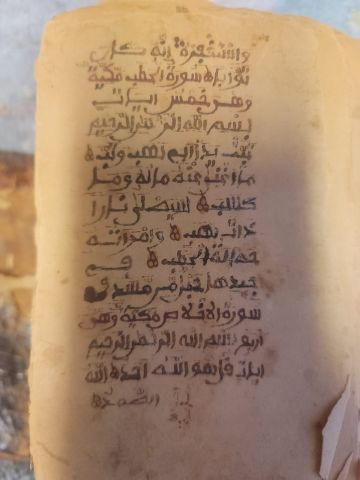 واستغفره إنه كان
توابا سورة الحطب مكية
وهي خمس آيات
بسم الله الرحمن الرحيم
تبت يدا أبي لهب وتب
ما أغنى عنه ماله وما
كسب سيصلى نارا
ذات لهب وامرأته
حمالة الحطب في
جيدها حبل من مسد
سورة الإخلاص مكية وهي
أربع بسم الله الرحمن الرحيم
آيات قل هو الله أحد الله
الصمد